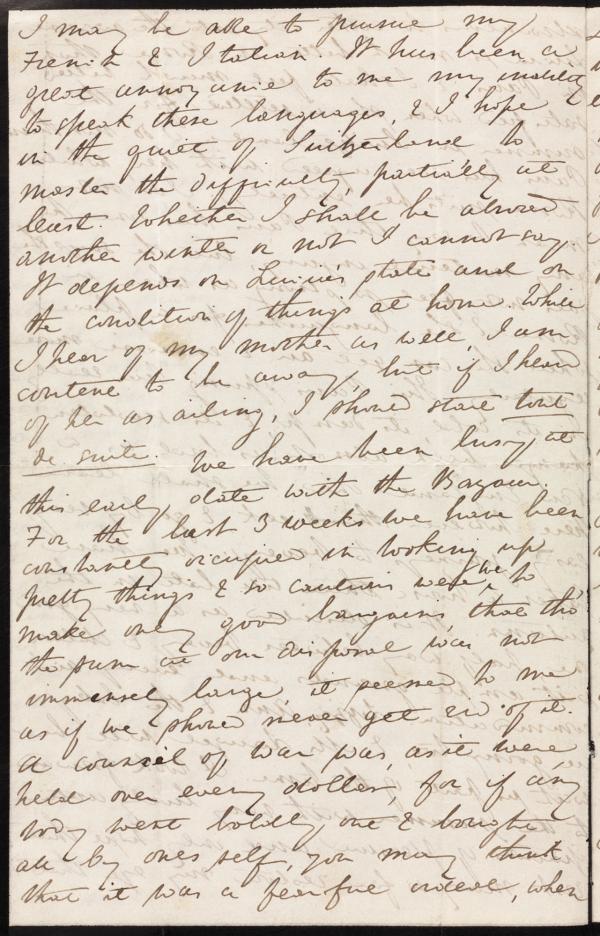 I may be able to pursue my
French & Italian. It has been a
great annoyance to me my inability
to speak these languages, & I hope
in the quiet of Switzerland to
master the difficulty, partially at
least. Whether I shall be abroad
another winter or not I cannot say.
It depends on Lucia's state and on
the condition of things at home. While
I hear of my mother as well, I am
content to be away, but if I heard
of her as ailing, I should start tout
de suite. We have been busy at
this early date with the Bazaar.
For the last 3 weeks we have been
constantly occupied in looking up
pretty things & so cautious were we, to
make only good bargains that tho'
the sum at our disposal was not
immensely large, it seemed to me
as if we should never get rid of it.
A council of war was, as it were
held over every dollar, for if any
body went boldly out & bought
all by ones self, you may think
that it was a fearful ordeal, when